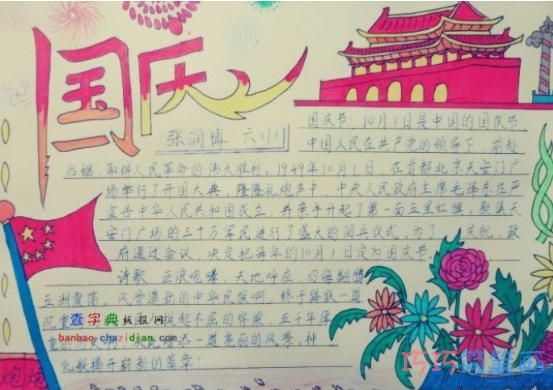 国庆
张润博 六(1)
国庆节:10月1日是中国的国庆节
中国人民在共产党的领导下,前赴
后继,取得人民革命的伟大胜利。1949年10月1日,在首都北京天安门广
场举行了开国大典,隆隆礼炮声中,中央人民政府主席毛泽东庄严
宣告中华人民共和国成立,并亲手升起了第一面五星红旗,聚集天
安门广场的三十万军民进行了盛大的阅兵仪式,为了 庆祝,政
府通过会议,决定把每年的10月1日定为国庆节。
诗歌 巨浪咆哮,天地呼应,四海翻腾
五洲震荡,风
的中华民族啊,终于踏
起不屈的脊梁 五千年
添一道亮丽的风景,神
揭开崭新的篇章!
查字典板报网
banbao.chazidian.com
巧巧简笔画